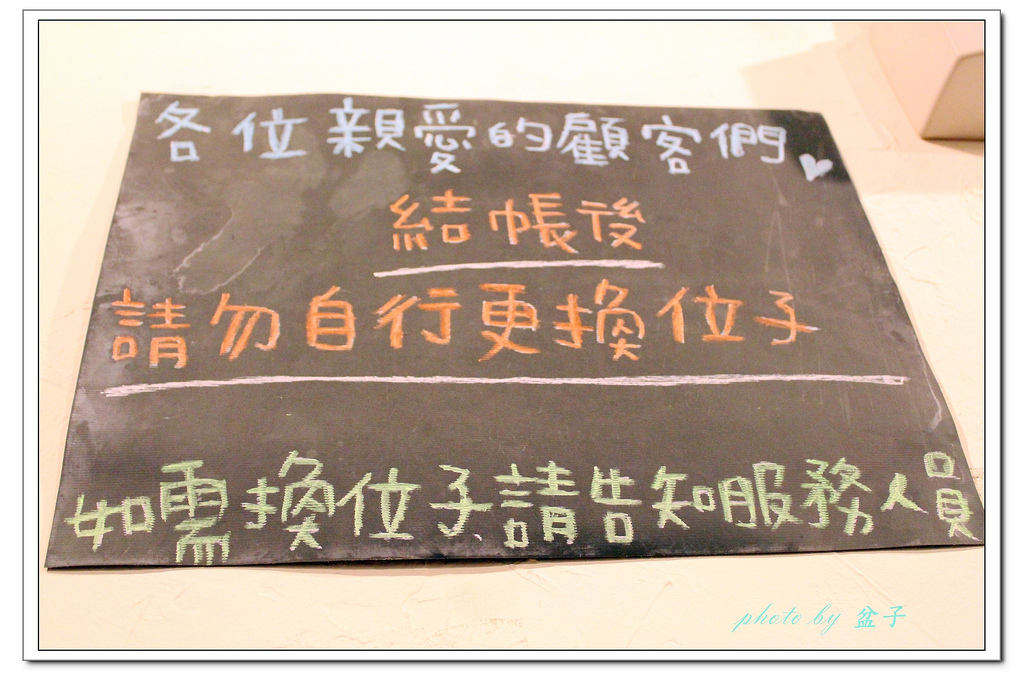 各位親愛的顧客們
結帳後
請勿自行更換位子
如需換位子請告知服務人員
photo by 盆子